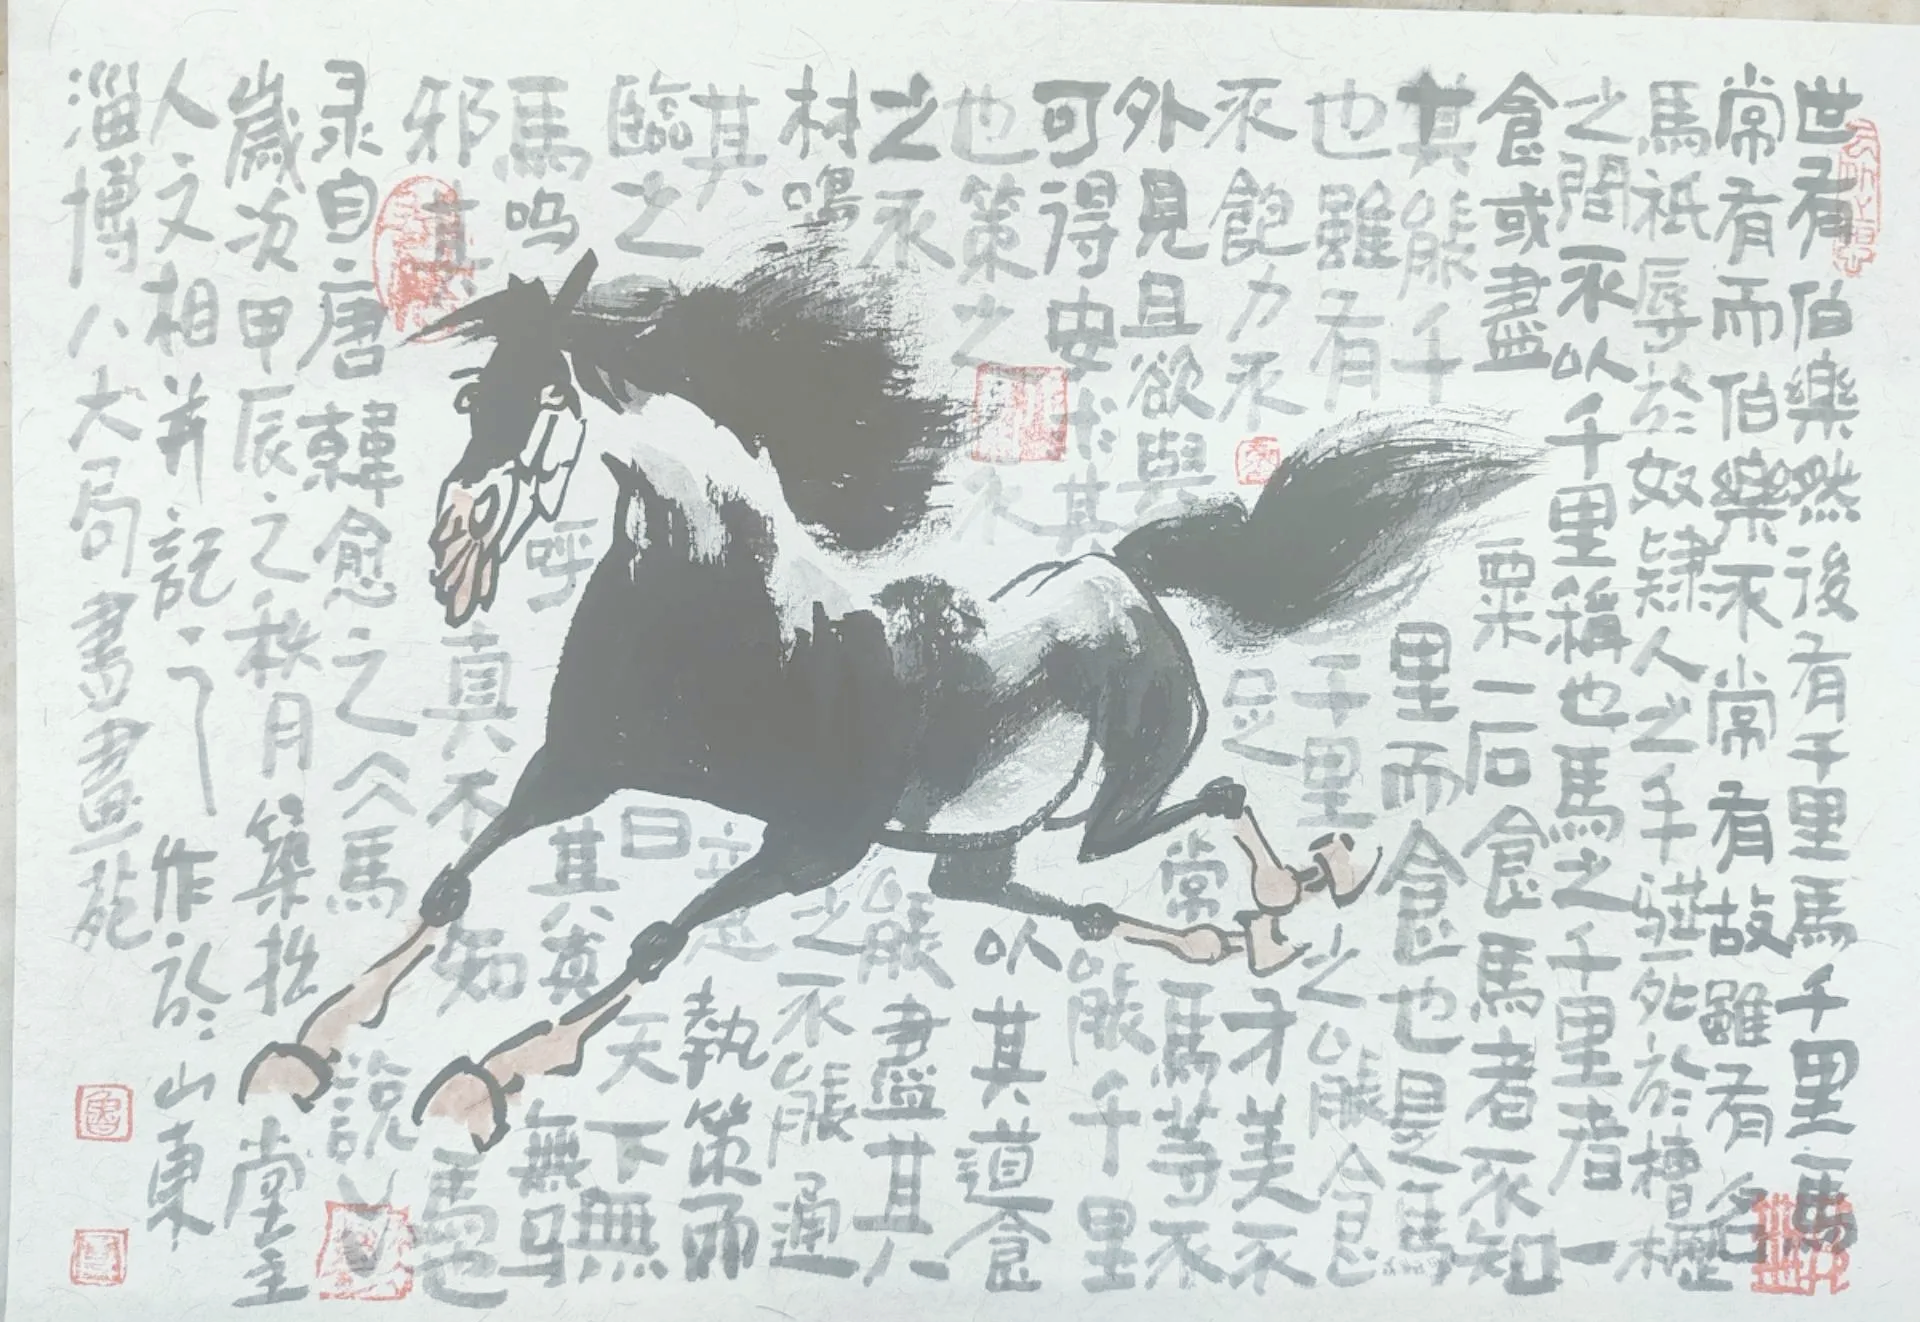 世有伯樂然後有千里馬千里馬
常有而伯樂不常有故雖有名
馬祇辱於奴隸人之手駢死於槽櫪
之間不以千里稱也馬之千里者一
食或盡粟一石食馬者不知
其能千里而食也是馬
也雖有千里之能食
不飽力不足才美不
外見且欲與常馬等不
可得安求其能千里
也策之不以其道食
之不能盡其
材鳴之不能通
其意執策而
臨之曰天下無
馬呜呼其真無马
邪其真不知馬也
录自唐韓愈之《馬說》
歲次甲辰之秋月築拙堂主
人文相并記之作於山東
淄博八大局書畫苑